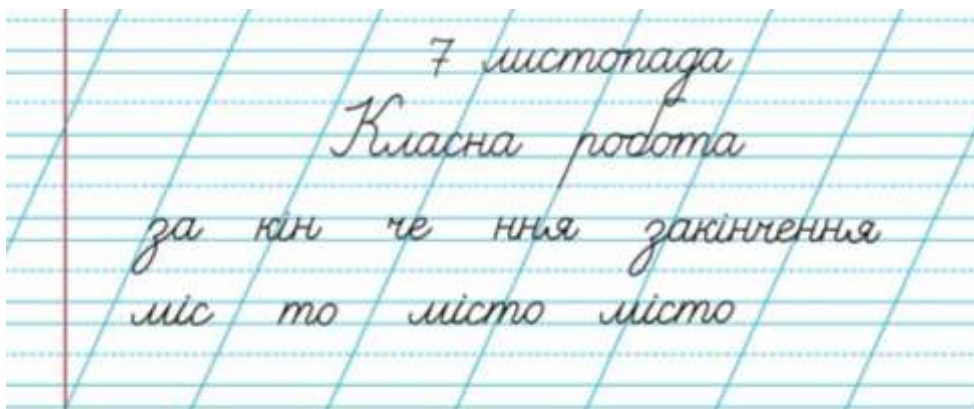 7 листопада
Класна робота
за кін че ння закінчення
міс то місто місто